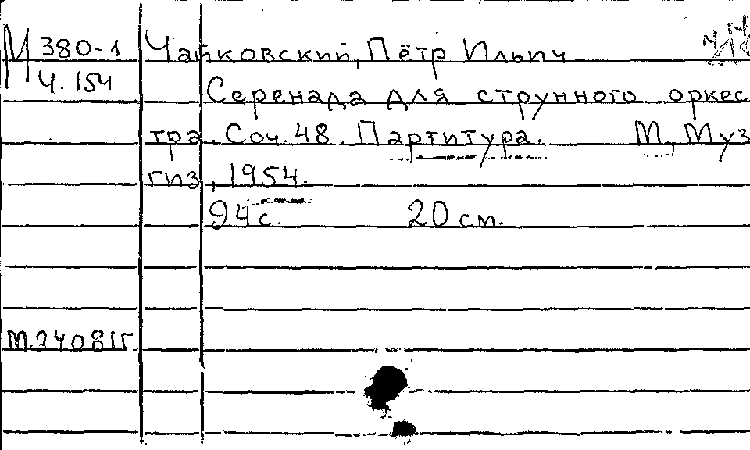 М 380-1 Чайковский, Пётр Ильич
Ч. 154
Серенада для струнного оркес
тра. Соч. 48. Партитура. М., Муз
гиз, 1954.
94 с. 20 см.